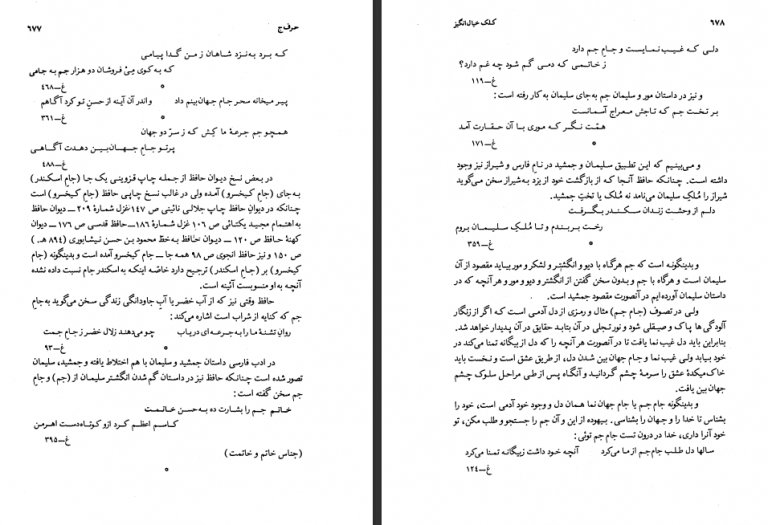 ۶۷۷
حرف ج
که برد به نزد شاهان ز من گدا پیامی
که به کوی می‌فروشان دو هزار جم به جامی
غ—۴۶۸
*
پیر میخانه سحر جام جهان‌بینم داد واندر آن آینه از حسن تو کرد آگاهم
غ—۳۶۱
*
همچو جم جرعهٔ ما کش که ز سرّ دو جهان
پرتو جام جهان‌بین دهدت آگاهی
غ—۴۸۸
در بعض نسخ دیوان حافظ از جمله چاپ قزوینی یک جا (جام اسکندر)
به‌جای (جام کیخسرو) آمده ولی در غالب نسخ چاپی حافظ (جام کیخسرو) است
چنانکه در دیوان حافظ چاپ جلالی نائینی ص ۱۴۷ غزل شمارهٔ ۲۰۹ — دیوان حافظ
به اهتمام مجید یکتائی ص ۱۰۶ غزل شمارهٔ ۱۸۶ — حافظ قدسی ص ۱۷۶ —
کهنهٔ حافظ ص ۱۲۰ — دیوان حافظ به‌خط محمود بن حسن نیشابوری (۸۹۴ هـ.)
ص ۱۵۰ و نیز حافظ انجوی ص ۹۸ همه جا — جام کیخسرو آمده است و بدینگونه (جام
کیخسرو) بر (جام اسکندر) ترجیح دارد خاصّه اینکه به اسکندر جام نسبت داده نشده
آنچه به او منسوبست آئینه است.
حافظ وقتی نیز که از آب خضر یا آب جاودانگی زندگی سخن می‌گوید به‌جام
جم که کنایه از شراب است اشاره می‌کند:
روان تشنهٔ ما را به جرعه‌ای دریاب چو می‌دهند زلال خضر ز جام جمت
غ—۹۳
*
در ادب فارسی داستان جمشید و سلیمان با هم اختلاط یافته و جمشید، سلیمان
تصور شده است چنانکه حافظ نیز در داستان گم شدن انگشتر سلیمان از (جم) و جام
جم سخن گفته است:
خاتم جم را بشارت ده به حسن خاتمت
کاسم اعظم کرد ازو کوتاه دست اهرمن
غ—۳۹۵
(جناس خاتم و خاتمت)
*
کلک خیال‌انگیز
۶۷۸
دلی که غیب نمایست و جام جم دارد
ز خاتمی که دمی گم شود چه غم دارد؟
غ—۱۱۹
و نیز در داستان مور و سلیمان جم به‌جای سلیمان به کار رفته است:
بر تخت جم که تاجش معراج آسمانست
همّت نگر که موری با آن حقارت آمد
غ—۱۷۱
*
و می‌بینیم که این تطبیق سلیمان و جمشید در نام فارس و شیراز نیز وجود
داشته است. چنانکه حافظ آنجا که از بازگشت خود از یزد به شیراز سخن می‌گوید
شیراز را مُلک سلیمان می‌نامد نه مُلک یا تخت جمشید.
دلم از وحشت زندان سکندر بگرفت
رخت بربندم و تا مُلک سلیمان بروم
غ—۳۵۹
*
و بدینگونه است که جم هرگاه با دیو و انگشتر و لشکر و مور بیاید مقصود از آن
سلیمان است و هرگاه با جم و بدون سخن گفتن از انگشتر و دیو و مور هر آنچه که در
داستان سلیمان آورده‌ایم در آنصورت مقصود جمشید است.
ولی در تصوف (جام جم) مثال و رمزی از دل آدمی است که اگر از زنگار
آلودگی‌ها پاک و صیقلی شود و نور تجلی در آن بتابد حقایق در آن پدیدار خواهد شد.
بنابراین باید دل غیب نما یافت تا در آنصورت هر آنچه را که دل از بیگانه تمنا می‌کند در
خود بیابد ولی غیب نما و جام جهان بین شدن دل، از طریق عشق است و نخست باید
خاک میکدهٔ عشق را سرمهٔ چشم گردانید و آنگاه پس از طی مراحل سلوک چشم
جهان بین یافت.
و بدینگونه جام جم یا جام جهان نما همان دل و وجود خود آدمی است، خود را
بشناس تا خدا را و جهان را بشناسی. بیهوده از این و آن جم را جستجو و طلب مکن، تو
خود آنرا داری، خدا در درون تست جام جم توئی:
سالها دل طلب جام جم از ما می‌کرد آنچه خود داشت ز بیگانه تمنا می‌کرد
غ—۱۲۴
*